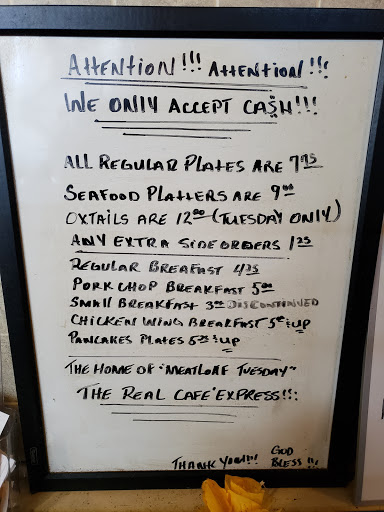 ATTENTION!!! ATTENTION!!!
WE ONLY ACCEPT CA$H!!!
ALL REGULAR PLATES ARE 7.75
SEAFOOD PLATTERS ARE 9.00
OXTAILS ARE 12.00 (TUESDAY ONLY)
ANY EXTRA SIDEORDERS 1.25
REGULAR BREAFAST 4.25
PORK CHOP BREAKFAST 5.00
SMALL BREAKFAST 3.00 DISCONTINUED
CHICKEN WING BREAKFAST 5 & UP
PANCAKES PLATES 5.25 & UP
THE HOME OF "MEATLOAF TUESDAY"
THE REAL CAFE' EXPRESS!!!
THANK YOU!!! GOD BLESS!!!